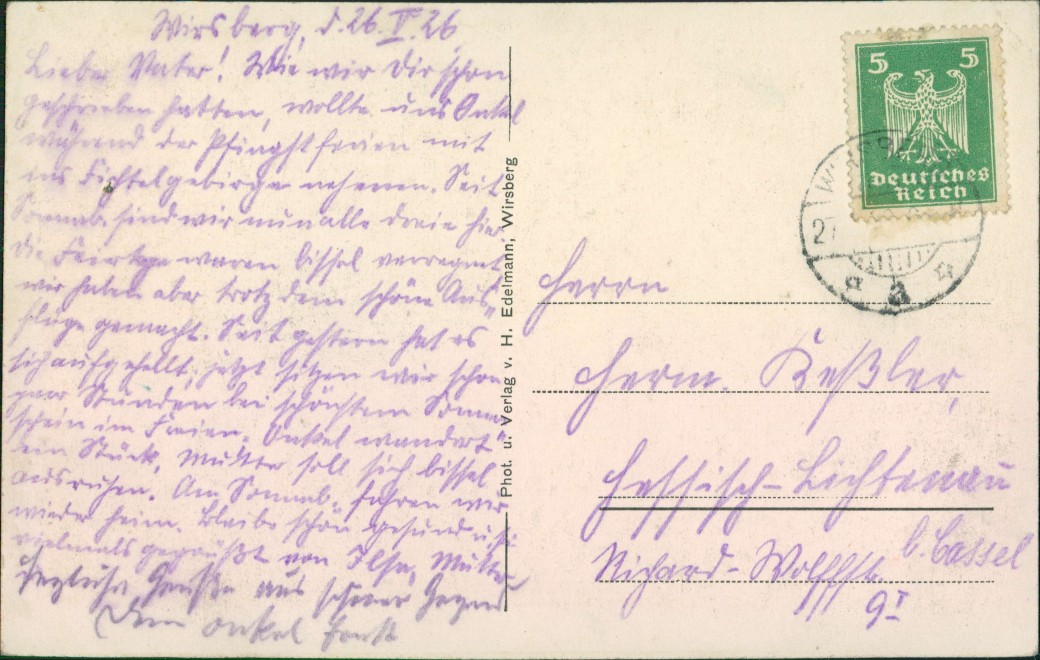 Wirsberg, d. 26. V. 26
Lieber Vater! Wie wir Dir schon
geschrieben hatten, wollte uns Onkel
während der Pfingstferien mit
ins Fichtelgebirge nehmen. Seit
Sonnab. sind wir nun alle dreie hier
Die Feiertage waren bissel verregnet
wir haben aber trotz dem schöne Aus-
flüge gemacht. Seit gestern hat es
sich aufgehellt, jetzt sitzen wir schon
paar Stunden bei schönstem Sonnen-
schein im Freien. Onkel wandert
ein Stück, Mutter soll sich bissel
ausruhen. Am Sonnab. fahren wir
wieder heim. Bleibe schön gesund u. sei
vielmals gegrüßt von Ilse, Mutter
Herzliche Grüße aus schöner Gegend
Dein Onkel
Phot. u. Verlag v. H. Edelmann, Wirsberg
5 5
Deutsches
Reich
27
a
Herrn
Herm. Keßler,
Hessisch-Lichtenau
b. Cassel
Richard-Wolffstr.
9 I